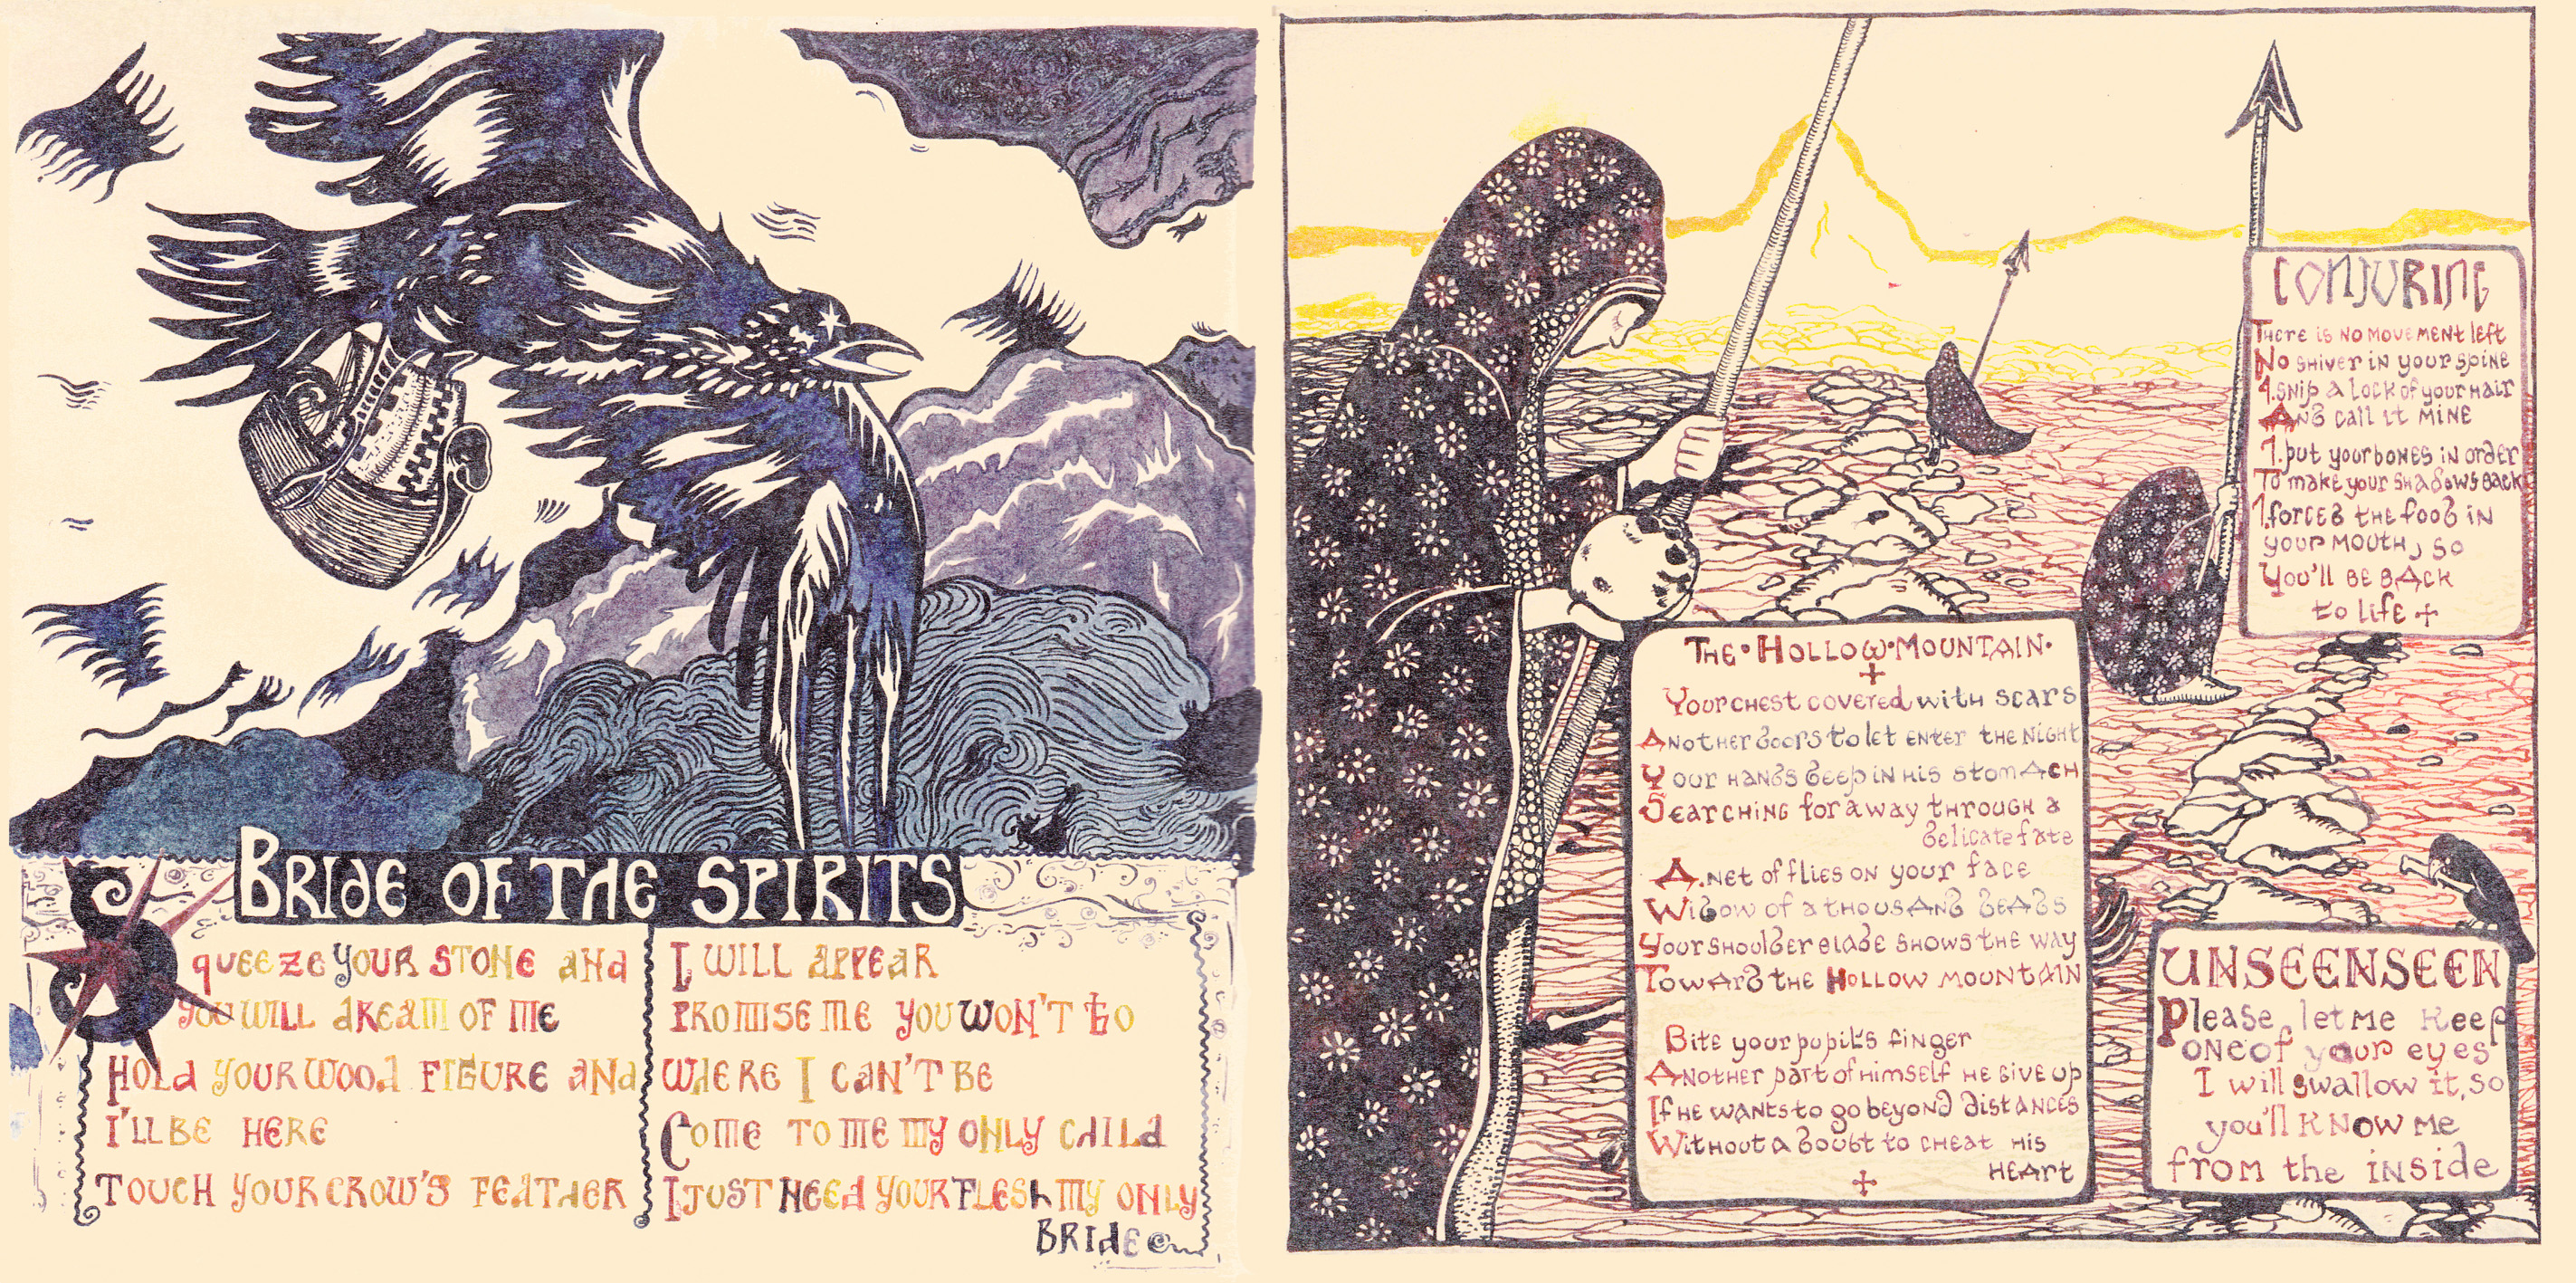 BRIDE OF THE SPIRITS
Squeeze your stone and
you will dream of me
Hold your wood figure and
I'll be here
Touch your crow's feather
I will appear
Promise me you won't go
where I can't be
Come to me my only child
I just need your flesh my only
bride
THE•HOLLOW•MOUNTAIN•
Your chest covered with scars
Another doors to let enter the night
Your hands deep in his stomach
Searching for a way through a
delicate fate
A net of flies on your face
Widow of a thousand deads
Your shoulder blade shows the way
Toward the Hollow mountain
Bite your pupil's finger
Another part of himself he give up
If he wants to go beyond distances
Without a doubt to cheat his
heart
CONJURING
There is no movement left
No shiver in your spine
I snip a lock of your hair
And call it mine
I put your bones in order
To make your shadows back
I forced the food in
your mouth, so
You'll be back
to life
UNSEENSEEN
Please, let me keep
one of your eyes
I will swallow it, so
you'll know me
from the inside